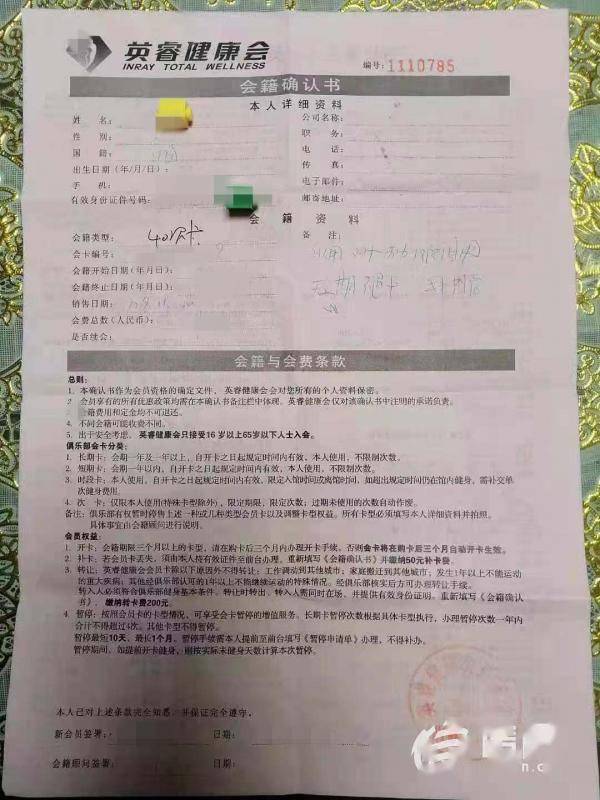 英睿健康会
INRAY TOTAL WELLNESS
编号：1110785
会籍确认书
本人详细资料
姓 名：
公司名称：
性 别：
职 务：
国 籍：
电 话：
出生日期（年/月/日）：
传 真：
手 机：
电子邮件：
有效身份证件号码：
邮寄地址：
会 籍 资 料
会籍类型：40次卡
备 注：
会卡编号：
会籍开始日期（年月日）：
会籍终止日期（年月日）：
销售日期：
会费总数（人民币）：
是否续会：
会籍与会费条款
总则：
1．本确认书作为会员资格的确定文件，英睿健康会会对您所有的个人资料保密。
2．会员享有的所有优惠政策均需在本确认书备注栏中体现，英睿健康会仅对该确认书中注明的承诺负责。
会籍费用和定金均不可退还。
4．不同会籍可能收费不同。
5．出于安全考虑，英睿健康会只接受16岁以上65岁以下人士入会。
俱乐部会卡分类：
1．长期卡：会期一年及一年以上，自开卡之日起规定时间内有效，本人使用，不限制次数。
2．短期卡：会期一年以内，自开卡之日起规定时间内有效，本人使用，不限制次数。
3．时段卡：本人使用，自开卡之日起规定时间内有效，限定入馆时间或离馆时间，如超出规定时间仍在馆内健身，需补交单
次健身费用。
4．次 卡：仅限本人使用（特殊卡型除外），限定期限，限定次数；过期未使用的次数自动作废。
备注：俱乐部有权暂时停售上述一种或几种类型会员卡以及调整卡型权益。所有卡型必须填写本人详细资料并拍照。
具体事宜由会籍顾问进行说明。
会员权益：
1．开卡：会籍期限三个月以上的卡型，请在购卡后三个月内办理开卡手续，否则会卡将在购卡后三个月自动开卡生效。
2．补卡：若会员卡丢失，须由本人持有效证件至前台办理，重新填写《会籍确认书》并缴纳50元补卡费。
3．转让：英睿健康会会籍除以下原因外不得转让：工作调动到其他城市；家庭搬迁到其他城市；发生1年以上不能运动
的重大疾病；其他经俱乐部认可的1年以上不能继续运动的特殊情况。经俱乐部核实后方可办理转让手续。
转入人必须符合俱乐部健身基本条件，转让时转出、转入人需同时在场，并提供有效身份证明。重新填写《会籍确认
书》，缴纳转卡费200元。
4．暂停：按照会员卡的卡型情况，可享受会卡暂停的增值服务。长期卡暂停次数根据具体卡型执行，办理暂停次数一年内
合计不得超过 次。其他卡型不得暂停。
暂停最短10天，最长1个月，暂停手续需本人提前至前台填写《暂停申请单》办理，不得补办。
暂停期间，如提前开卡健身，则按实际未健身天数计算本次暂停。
本人已对上述条款完全知悉 并保证完全遵守。
新会员签署：
日期：
会籍顾问签署：
日期：